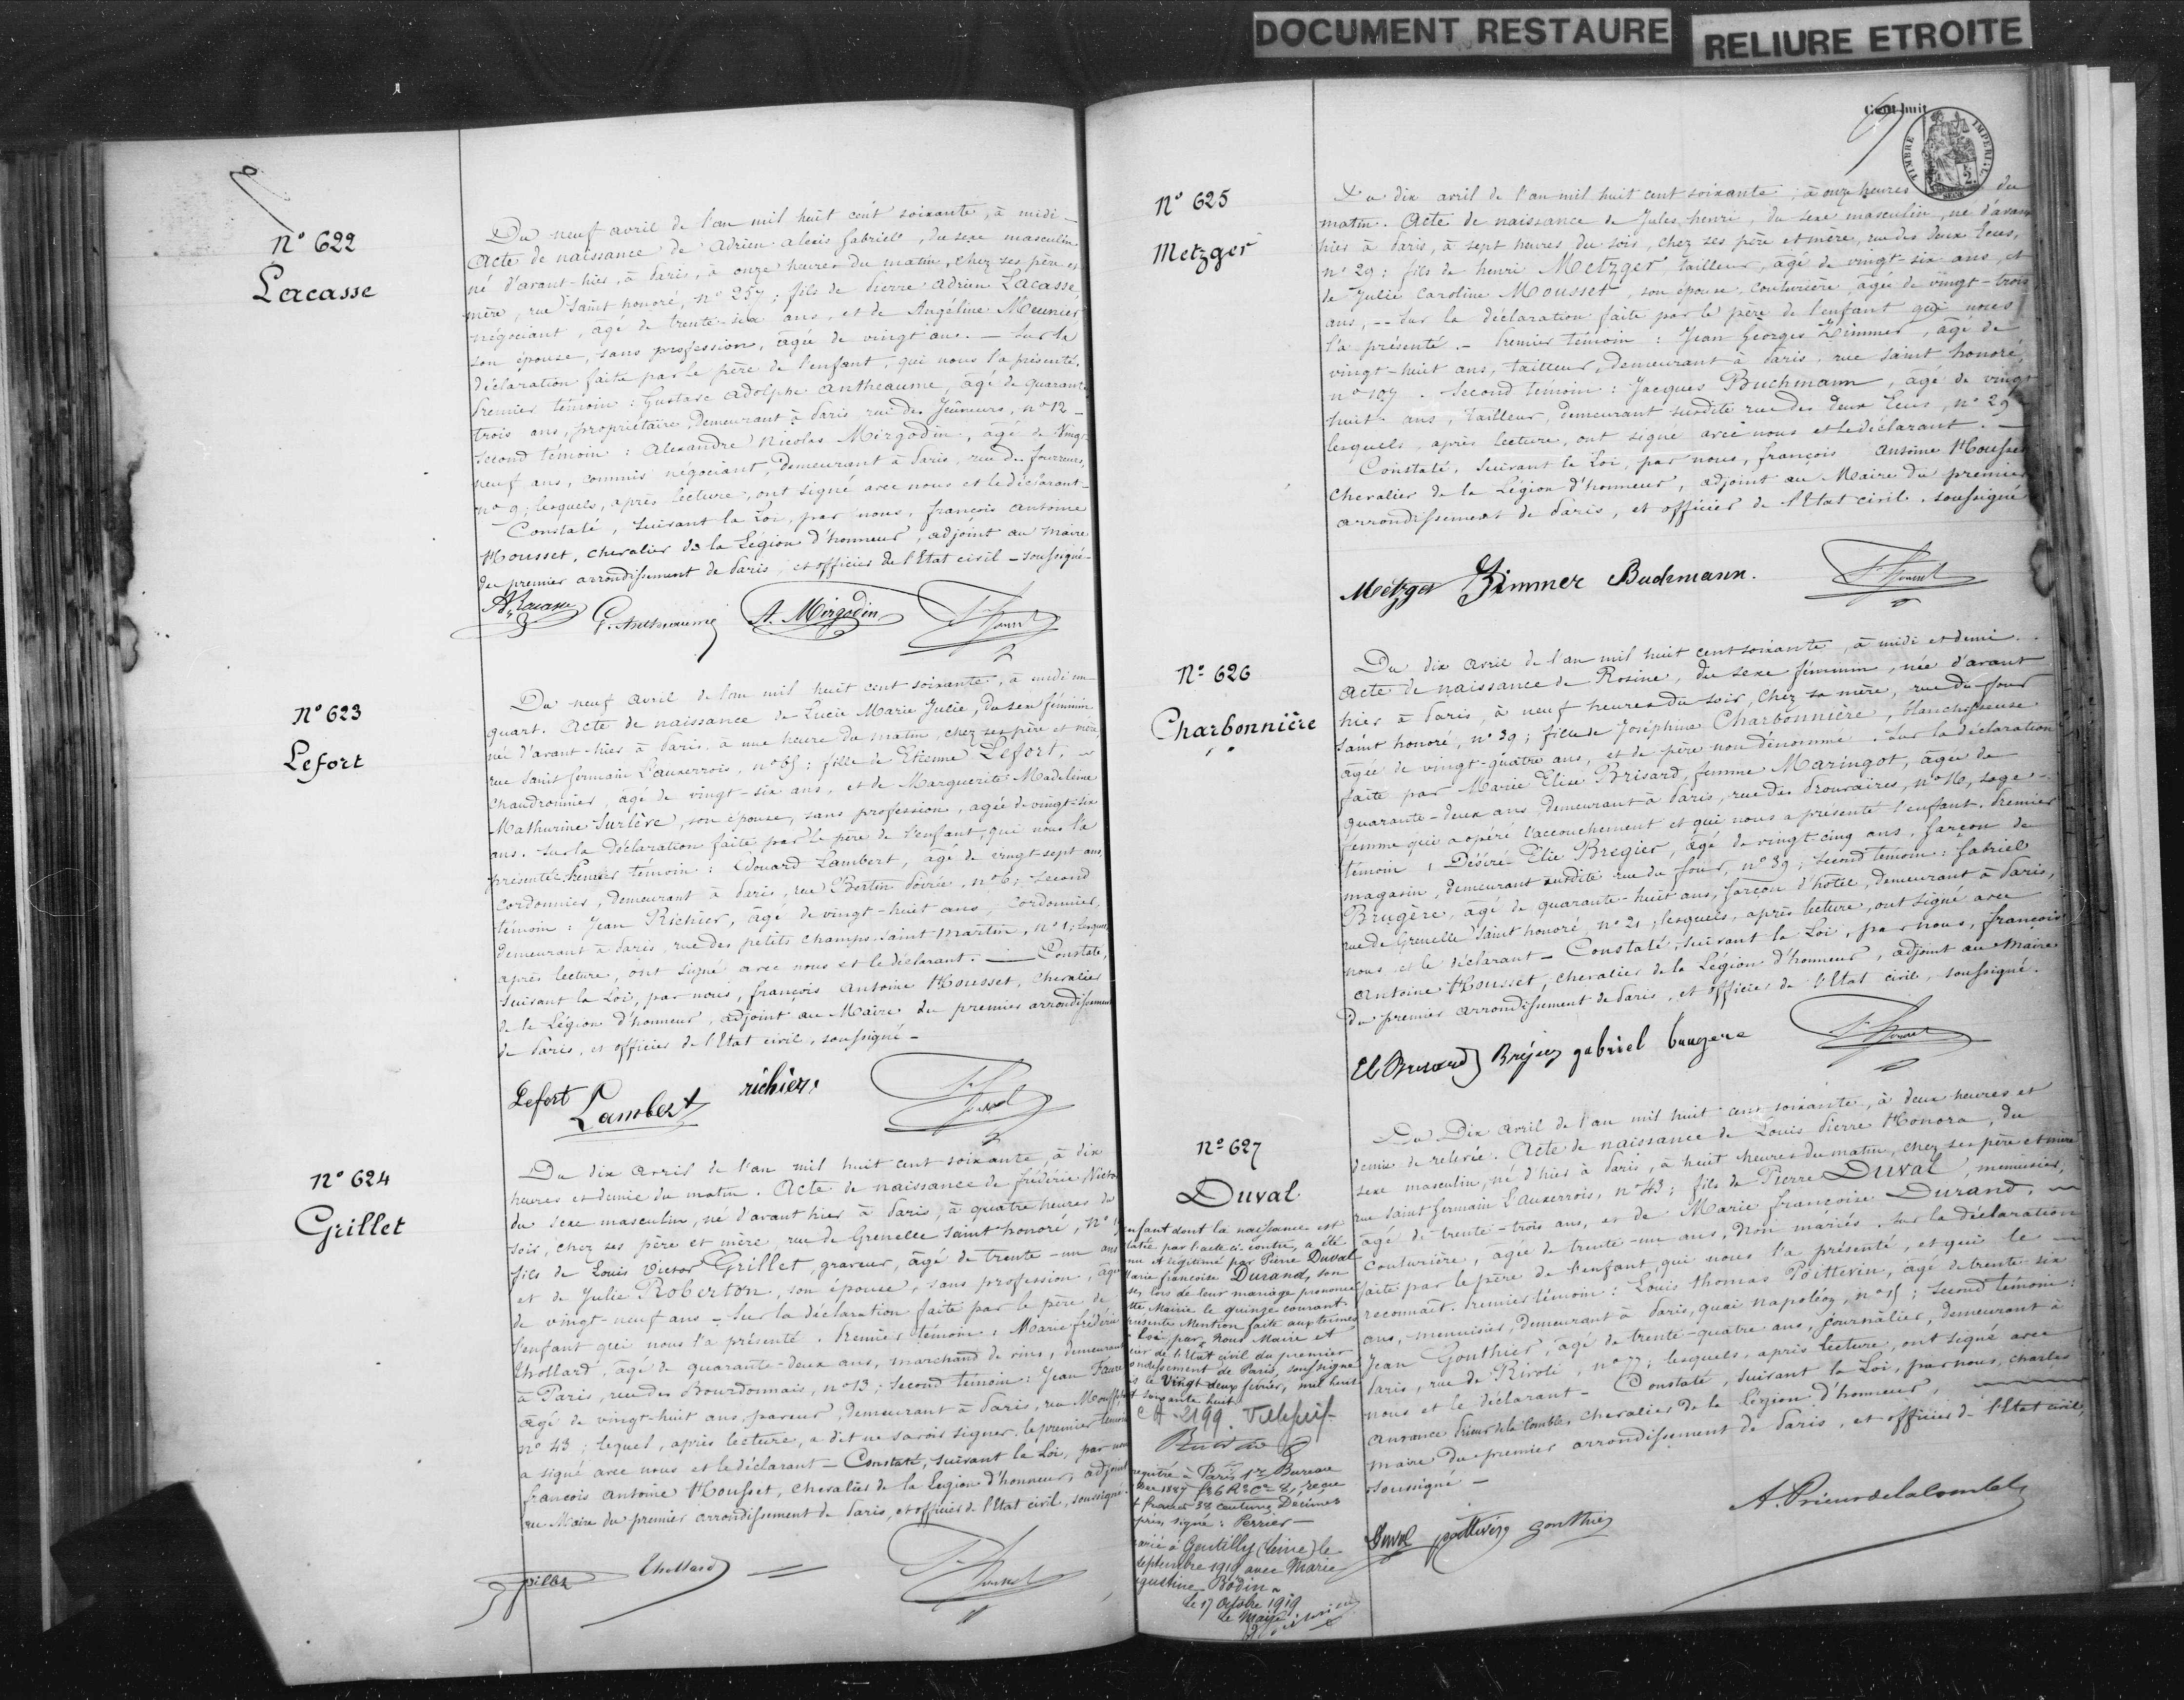 DOCUMENT RESTAURE
RELIURE ETROITE
N° 622
Lacasse
Du neuf avril de l'an mil huit cent soixante, à midi -
Acte de naissance de Adrien Alexis Gabriel, du sexe masculin
né d'avant-hier, à Paris, à onze heures du matin, chez ses père et
mère, rue Saint honoré, n° 257; fils de Pierre Adrien Lacasse
négociant, agé de trente-six ans, et de Angéline Meunier
son épouse, sans profession, âgée de vingt ans. - Sur la
déclaration faite par le père de l'enfant, qui nous l'a présenté.
Premier témoin: Gustave Adolphe Antheaume, âgé de quarante
trois ans, propriétaire, demeurant à Paris, rue des Jeûneurs, n° 12 -
Second témoin: Alexandre Nicolas Mirgodin, âgé de Vingt
neuf ans, commis négociant, demeurant à Paris, rue des fourreurs,
n° 9; lesquels, après lecture, ont signé avec nous et le déclarant -
Constaté, suivant la Loi, par nous, françois antoine
Housset, chevalier de la Légion d'honneur, adjoint au maire
du premier arrondissement de Paris, et officier de l'Etat civil - soussigné -
A. Lacasse G. Antheaume A. Mirgodin
N° 623
Lefort
Du neuf avril de l'an mil huit cent soixante, à midi un
quart. Acte de naissance de Lucie Marie Julie, du sexe féminin
née d'avant-hier à Paris, à une heure du matin, chez ses père et mère,
rue Saint Germain L'auxerrois, n° 65; fille de Etienne Lefort,
chaudronnier, âgé de vingt-six ans, et de Marguerite Madeleine
Mathurine Surlève, son épouse, sans profession, agée de vingt-six
ans. Sur la déclaration faite par le père de l'enfant, qui nous l'a
présentée. Premier témoin: Edouard Lambert, âgé de vingt-sept ans,
cordonnier, demeurant à Paris, rue Bertin Poirée, n° 6; Second
témoin: Jean Richier, âgé de vingt-huit ans, cordonnier,
demeurant à Paris, rue des petits champs Saint Martin, n° 1; lesquels,
après lecture, ont signé avec nous et le déclarant. - Constaté,
suivant la Loi, par nous, françois Antoine Housset, chevalier
de la Légion d'honneur, adjoint au Maire du premier arrondissement
de Paris, et officier de l'Etat civil, soussigné -
Lefort Lambert richier
N° 624
Grillet
Du dix avril de l'an mil huit cent soixante, à dix
heures et demie du matin. Acte de naissance de frédéric Victor
du sexe masculin, né d'avant hier à Paris, à quatre heures du
soir, chez ses père et mère, rue de Grenelle Saint honoré, N°
fils de Louis Victor Grillet, graveur, âgé de trente-un ans
et de Julie Roberton, son épouse, sans profession, âgée
de vingt-neuf ans - Sur la déclaration faite par le père de
l'enfant qui nous l'a présenté. Premier témoin: Marie frédéric
Thollard, âgé de quarante-deux ans, marchand de vins, demeurant
à Paris, rue des Bourdonnais, n° 13; Second témoin: Jean Faure
âgé de vingt-huit ans, paveur, demeurant à Paris, rue Mouffetard
n° 43; lequel, après lecture, a dit ne savoir signer. le premier témoin
a signé avec nous et le déclarant - Constaté, suivant la Loi, par nous
françois Antoine Housset, chevalier de la Légion d'honneur, adjoint
au Maire du premier arrondissement de Paris, et officier de l'Etat civil, soussigné -
grillet Thollard
Cent huit
TIMBRE IMPERIAL
N° 625
Metzger
Du dix avril de l'an mil huit cent soixante, à onze heures du
matin. Acte de naissance de Jules henri, du sexe masculin, né d'avant
hier à Paris, à sept heures du soir, chez ses père et mère, rue des Deux Ecus,
n° 29; fils de henri Metzger, tailleur, âgé de vingt-six ans, et
de Julie Caroline Mousset, son épouse, couturière, agée de vingt-trois
ans, -- Sur la déclaration faite par le père de l'enfant qui nous
l'a présenté. - Premier témoin: Jean Georges Zimmer, âgé de
vingt-huit ans, tailleur, demeurant à Paris, rue saint honoré,
n° 107. Second témoin: Jacques Buchmann, âgé de vingt
huit ans, tailleur, demeurant susdite rue des deux Ecus, n° 29
lesquels, après lecture, ont signé avec nous et le déclarant. -
Constaté, suivant la Loi, par nous, françois Antoine Housset
chevalier de la Légion d'honneur, adjoint au Maire du premier
arrondissement de Paris, et officier de l'Etat civil, soussigné
Metzger Zimmer Buchmann.
N° 626
Charbonnière
Du dix avril de l'an mil huit cent soixante, à midi et demi.
Acte de naissance de Rosine, du sexe féminin, née d'avant
hier à Paris, à neuf heures du soir, chez sa mère, rue du four
saint honoré, n° 39; fille de Joséphine Charbonnière, blanchisseuse
âgée de vingt-quatre ans, et de père non dénommé. Sur la déclaration
faite par Marie Elise Brisard, femme Maringot, âgée de
quarante-deux ans, demeurant à Paris, rue des Prouvaires, n° 16, sage-
femme qui a opéré l'accouchement et qui nous a présenté l'enfant. Premier
témoin, Désiré Elie Bregier, âgé de vingt-cinq ans, garçon de
magasin, demeurant susdite rue du four, n° 39; Second témoin: Gabriel
Brugère, âgé de quarante-huit ans, garçon d'hôtel, demeurant à Paris,
rue de Grenelle Saint honoré, n° 21; lesquels, après lecture, ont signé avec
nous et le déclarant - Constaté, suivant la Loi, par nous, françois
Antoine Housset, chevalier de la Légion d'honneur, adjoint au Maire
du premier arrondissement de Paris, et officier de l'Etat civil, soussigné.
gabriel
N° 627
Duval
Du Dix avril de l'an mil huit cent soixante, à deux heures et
demie de relevée. Acte de naissance de Louis Pierre Honora, du
sexe masculin, né d'hier à Paris, à huit heures du matin, chez ses père et mère
rue Saint Germain L'Auxerrois, n° 43; fils de Pierre Duval, menuisier,
âgé de trente-trois ans, et de Marie françoise Durand,
couturière, âgée de trente-un ans, non mariés. Sur la déclaration
faite par le père de l'enfant qui nous l'a présenté, et qui le
reconnaît. Premier témoin: Louis thomas Poittevin, âgé de trente six
ans, menuisier, demeurant à Paris, quai Napoléon, n° 15; Second témoin:
Jean Gonthier, âgé de trente-quatre ans, journalier, demeurant à
Paris, rue de Rivoli, n° 77; lesquels, après lecture, ont signé avec
nous et le déclarant - Constaté, suivant la Loi, par nous, charles
aurance Prieur de la Comble, chevalier de la Légion d'honneur,
maire du premier arrondissement de Paris, et officier de l'Etat civil,
soussigné -
Duval poittevin Gonthier
A. Prieur de la Comble
enfant dont la naissance est
par l'acte ci-contre, a été
et légitimé par Pierre Duval
Marie françoise Durand, son
lors de leur mariage prononcé
Mairie le quinze courant.
présente Mention faite aux termes
Loi par Nous Maire et
de l'Etat civil du premier
arrondissement de Paris, soussigné
le Vingt deux février, mil huit
soixante huit
2199.
à Paris 1er Bureau
francs 38 centimes Décimes
signé: Perrier -
à Gentilly (Seine) le
septembre 1919 avec Marie
Bodin
le 17 Octobre 1919
Le Maire